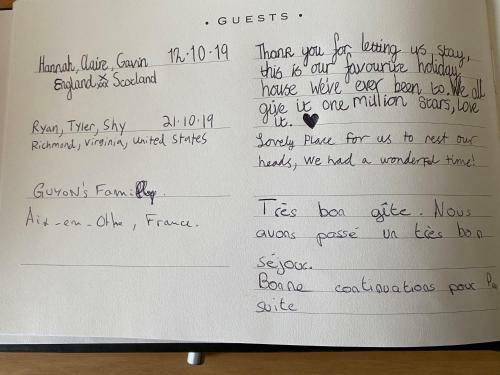 • GUESTS •
Hannah, Claire, Gavin 12·10·19
England Scotland
Thank you for letting us stay,
this is our favourite holiday
house we've ever been to. We all
give it one million stars, love
it. ♥
Ryan, Tyler, Shy 21·10·19
Richmond, Virginia, United States
Lovely Place for us to rest our
heads, we had a wonderful time!
GUYON'S Family.
Aix-en-Othe, France.
Très bon gîte. Nous
avons passé un très bon
séjour.
Bonne continuations pour la
suite